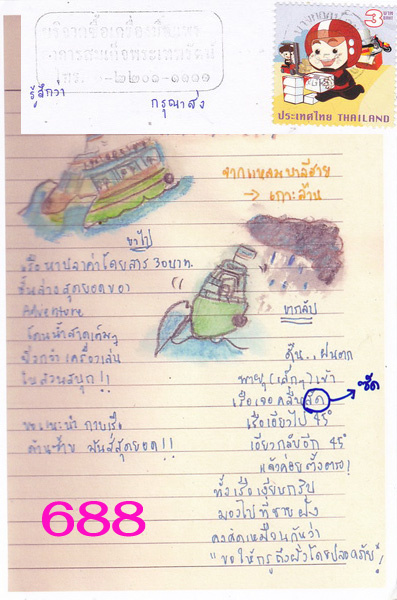 3 บาท
BAHT
ประเทศไทย THAILAND
รู้สึกว่า
กรุณาส่ง
จากแหลมบาลีฮาย
→ เกาะล้าน
ขาไป
เรือหาปลาค่าโดยสาร 30บาท.
ชั้นล่างสุดยอดของ
Adventure
โดนน้ำสาดเต็มๆ
ยิ่งกว่าเครื่องเล่น
ในสวนสนุก!!
ขอแนะนำ กาบเรือ
ด้านซ้าย มันส์สุดยอด!!
ขากลับ
ตึ้น.. ฝนตก
พายุ (เล็กๆ) เข้า
เรือเจอคลื่นสัด → ซัด
เรือเอียงไป 45°
เอียงกลับอีก 45°
แล้วค่อยตั้งตรง!
ทั้งเรือเงียบกริบ
มองไปที่ชายฝั่ง
คงคิดเหมือนกันว่า
"ขอให้กรูถึงฝั่งโดยปลอดภัย"!
688